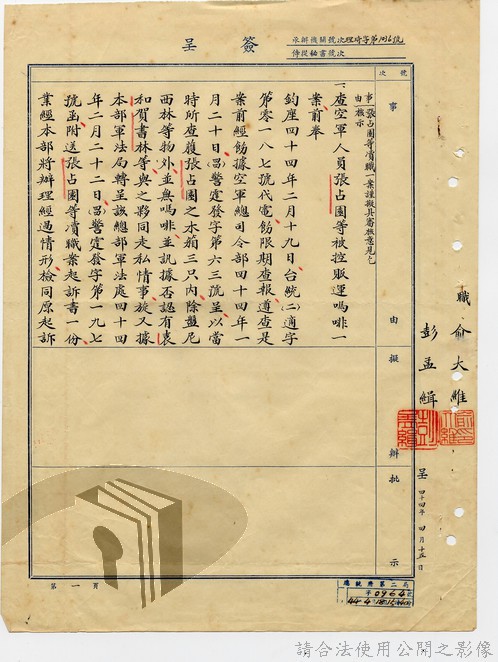 簽呈
承辦機關號次
傳授秘書號次
號次
事由擬辦
批示
事由:張占圍等瀆職一案謹擬具審核意見乞核示
一、查空軍人員張占圍等被控販運嗎啡一
案前奉
鈞座四十四年二月十九日台統(二)適字
第零一八七號代電飭限期查報遵查是
案前經飭據空軍總司令部四十四年一
月二十日(昌)警定發字第六三號呈以當
時所查獲張占圍之木箱三只內除盤尼
西林等物外並無嗎啡並訊據否認有袁
和賀書林等與之夥同走私情事旋又據
本部軍法局轉呈該總部軍法處四十四
年二月二十二日(昌)警定發字第一九七
號函附送張占圍等瀆職案起訴書一份
業經本部將辦理經過情形檢同原起訴
職俞大維
彭孟緝
呈
四十四年四月十五日
第一頁
總統府第二局
請合法使用公開之影像